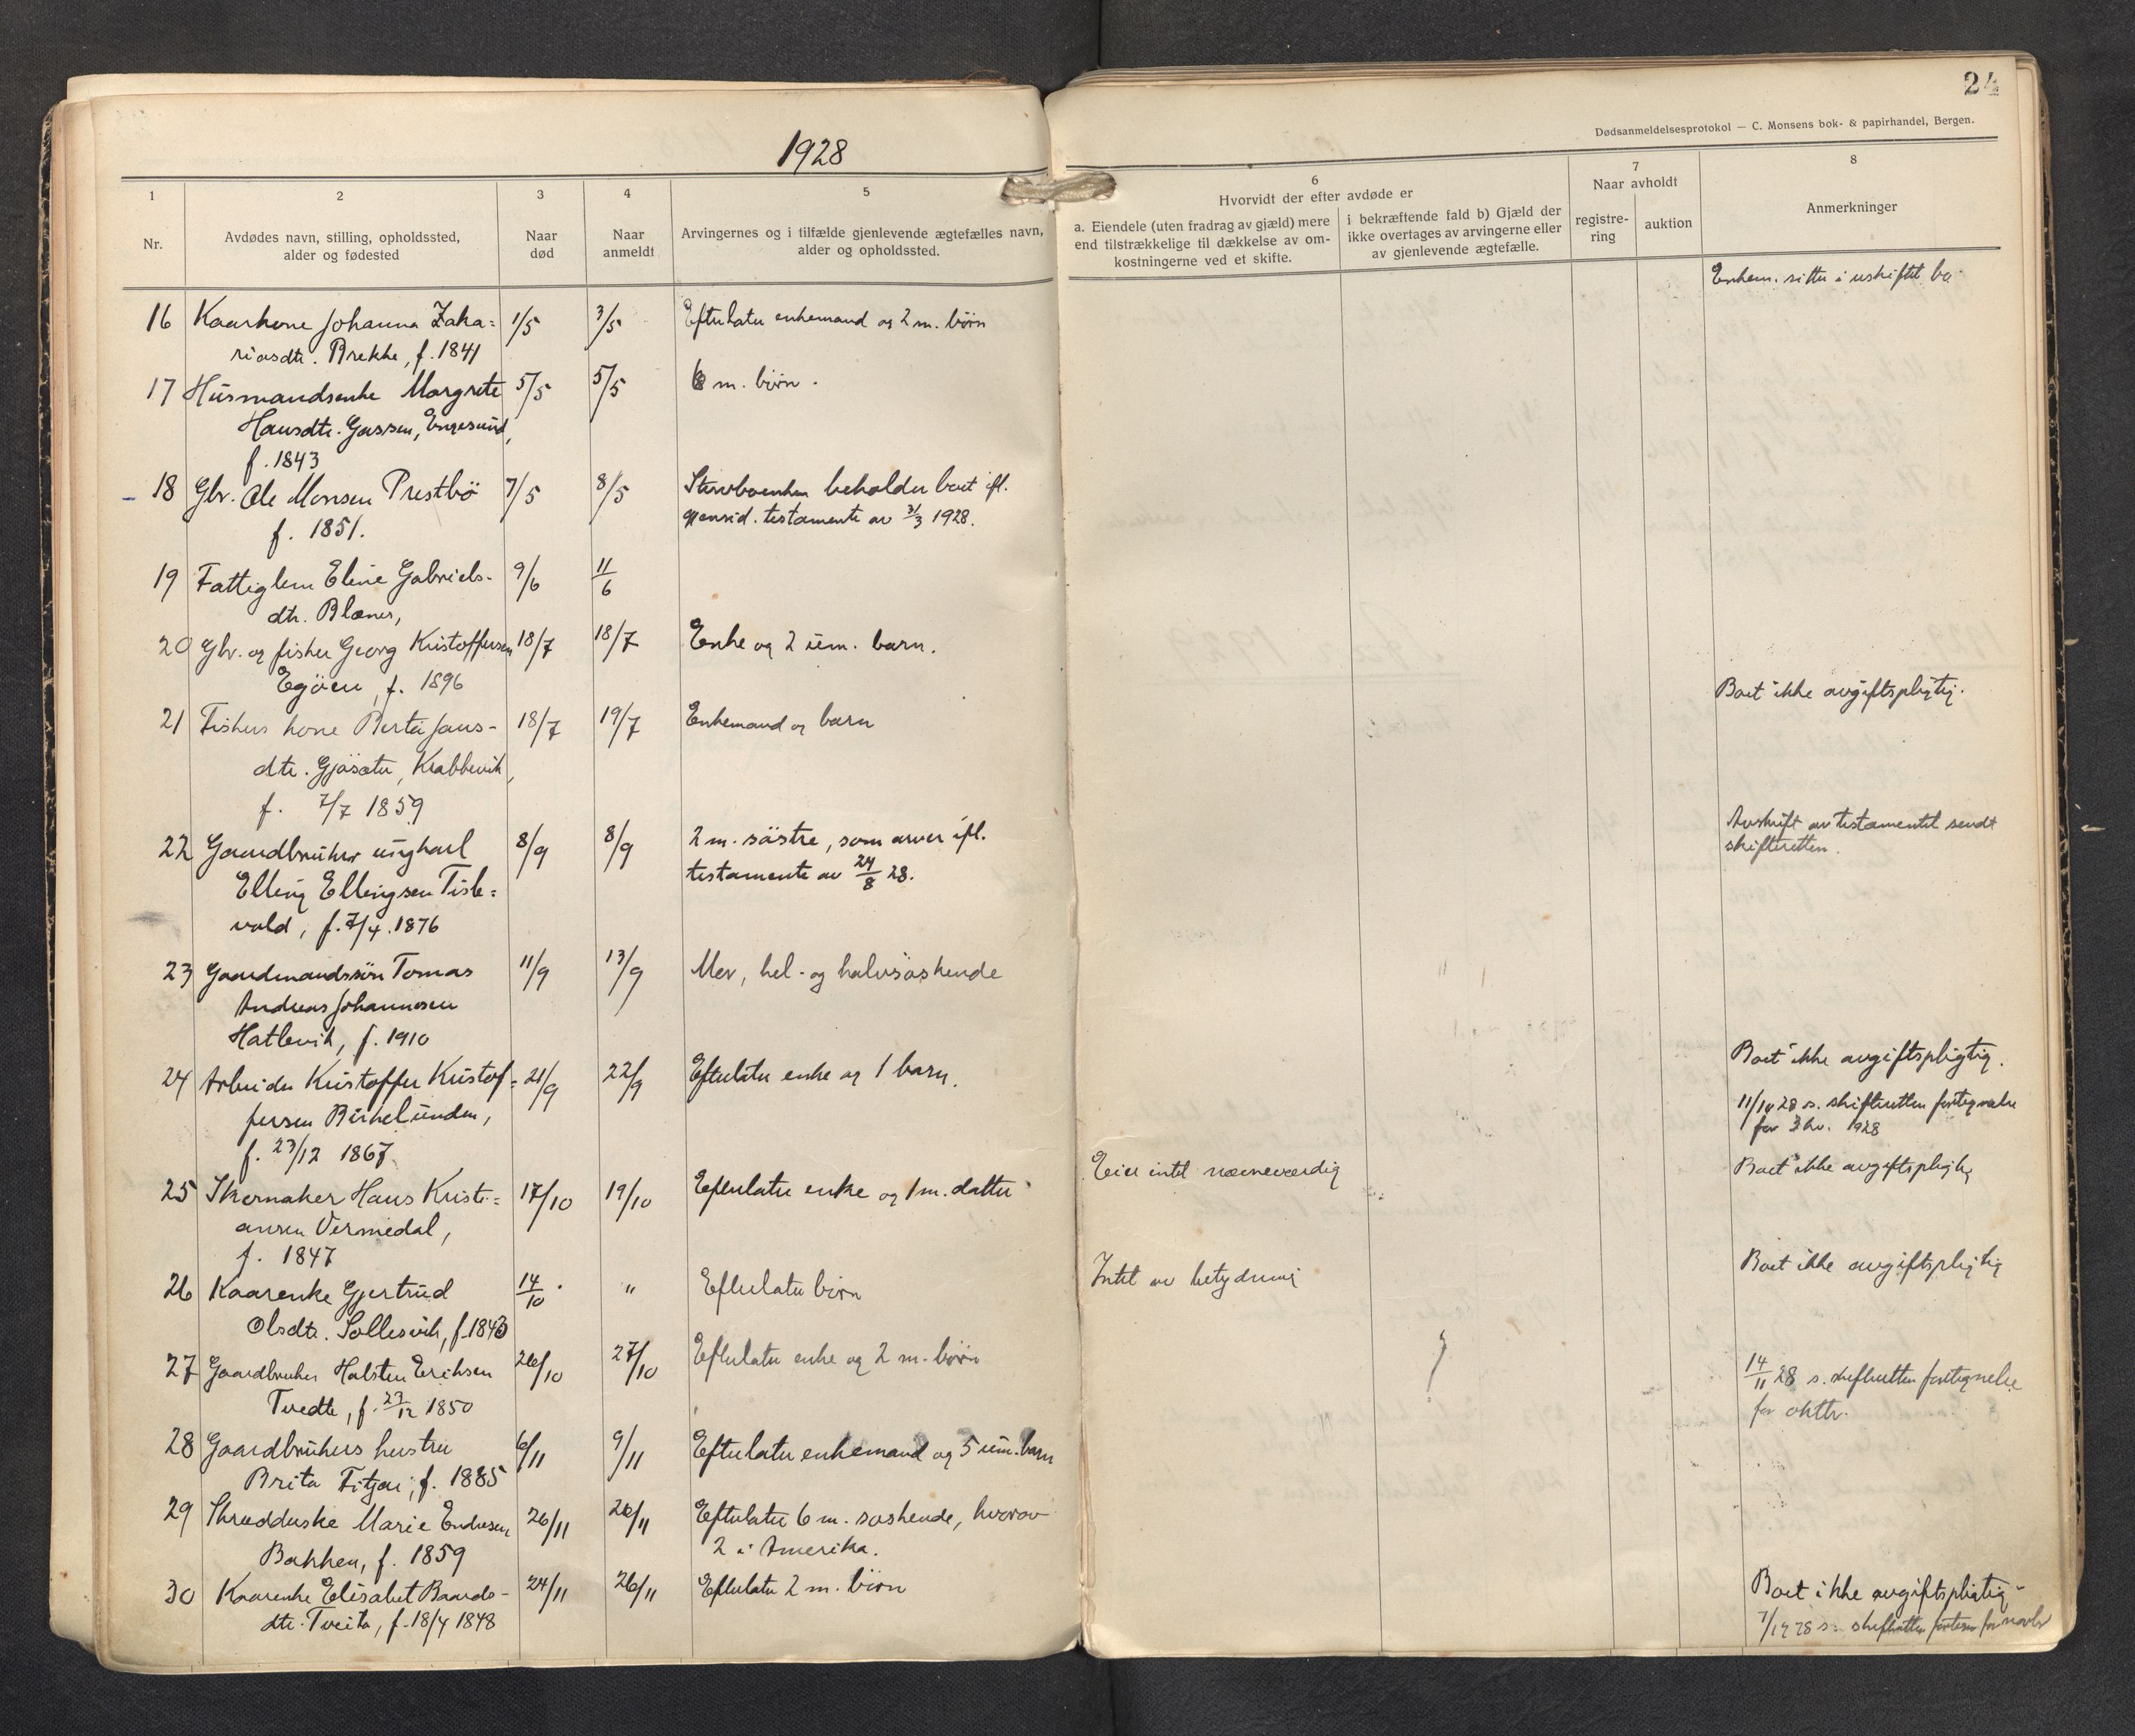 1928
24
Dødsanmeldelsesprotokol — C. Monsens bok- & papirhandel, Bergen.
1
Nr.
2
Avdødes navn, stilling, opholdssted,
alder og fødested
3
Naar
død
4
Naar
anmeldt
5
Arvingernes og i tilfælde gjenlevende ægtefælles navn,
alder og opholdssted.
6
Hvorvidt der efter avdøde er
a. Eiendele (uten fradrag av gjæld) mere
end tilstrækkelige til dækkelse av om-
kostningerne ved et skifte.
i bekræftende fald b) Gjæld der
ikke overtages av arvingerne eller
av gjenlevende ægtefælle.
7
Naar avholdt
registre-
ring
auktion
8
Anmerkninger
Enkem. sitter i uskiftet bo
16 Kaarkone Johanna Zaka= 1/5 3/5 Efterlater enkemand og 2 m. börn
riasdtr. Brekke, f. 1841
17 Husmandsenke Margrete 5/5 5/5 6 m. börn.
Hansdtr. Gassen, Engesund,
f. 1843
18 Gbr. Ole Monsen Prestbö 7/5 8/5 Stervboenken beholder boet ifl.
f. 1851. gjensid. testamente av 31/3 1928.
19 Fattiglem Eline Gabriels- 9/6 11/6
dtr. Blænes,
20 Gbr. og fisker Georg Kristoffersen 18/7 18/7 Enke og 2 um. barn.
Egöen, f. 1896
Boet ikke avgiftspligtig.
21 Fiskers kone Berta Jans- 18/7 19/7 Enkemand og barn
dtr. Gjösæter, Krabbevik,
f. 7/7 1859
22 Gaardbruker ungkarl 8/9 8/9 2 m. söstre, som arver ifl.
Elling Ellingsen Tisle= testamente av 24/8 28.
vold, f. 7/4. 1876
Avskrift av testamentet sendt
skifteretten.
23 Gaardmandssön Tomas 11/9 13/9 Mor, hel- og halvsöskende
Andreas Johannesen
Hatlevik, f. 1910
24 Arbeider Kristoffer Kristof= 21/9 22/9 Efterlater enke og 1 barn.
fersen Birkelunden,
f. 23/12 1867
Boet ikke avgiftspligtig.
11/10 28 s. skifteretten fortegnelse
for 3 kv. 1928
25 Skomaker Hans Kristi= 17/10 19/10 Efterlater enke og 1 m. datter
ansen Vermedal,
f. 1847
Eier intet nævneværdig
Boet ikke avgiftspligtig
26 Kaarenke Gjertrud 14/10 " Efterlater börn
Olsdtr. Sollesvik, f. 1843
Intet av betydning
Boet ikke avgiftspligtig
27 Gaardbruker Halsten Eriksen 26/10 27/10 Efterlater enke og 2 m. börn
Tvedte, f. 23/12 1850
14/11 28 s. skifteretten fortegnelse
for oktbr.
28 Gaardbrukers hustru 6/11 9/11 Efterlater enkemand og 5 um. barn
Brita Fitjar, f. 1885
29 Skrædderske Marie Endresen 26/11 26/11 Efterlater 6 m. söskende, hvorav
Bakken, f. 1859 2 i Amerika.
30 Kaarenke Elisabet Baards- 24/11 26/11 Efterlater 2 m. börn
dtr. Tveita, f. 18/4 1848
Boet ikke avgiftspligtig
7/12 28 s. skifteretten fortegn for novbr